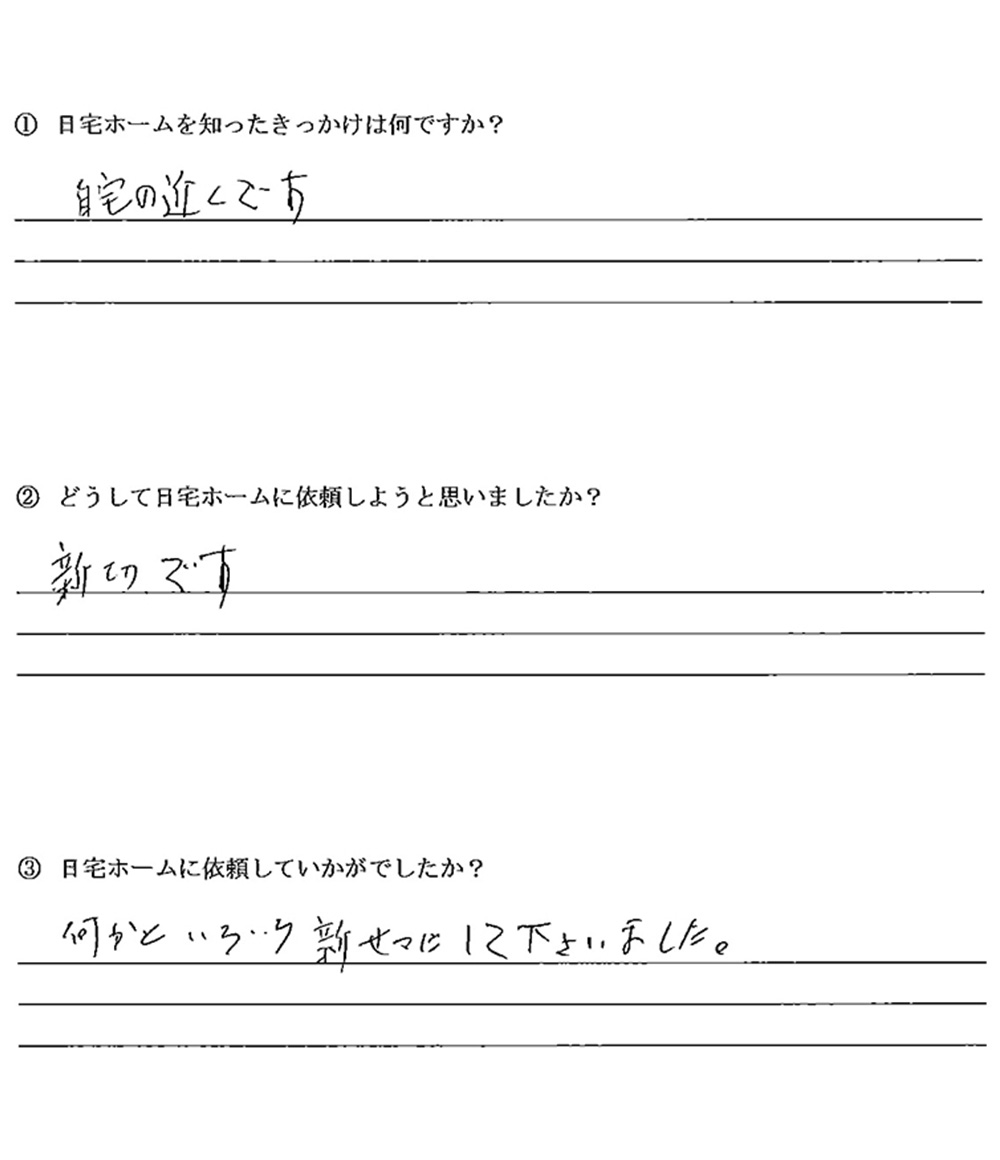 ① 日宅ホームを知ったきっかけは何ですか？
自宅の近くです
② どうして日宅ホームに依頼しようと思いましたか？
新切です
③ 日宅ホームに依頼していかがでしたか？
何かといろいろ新せつにして下さいました。